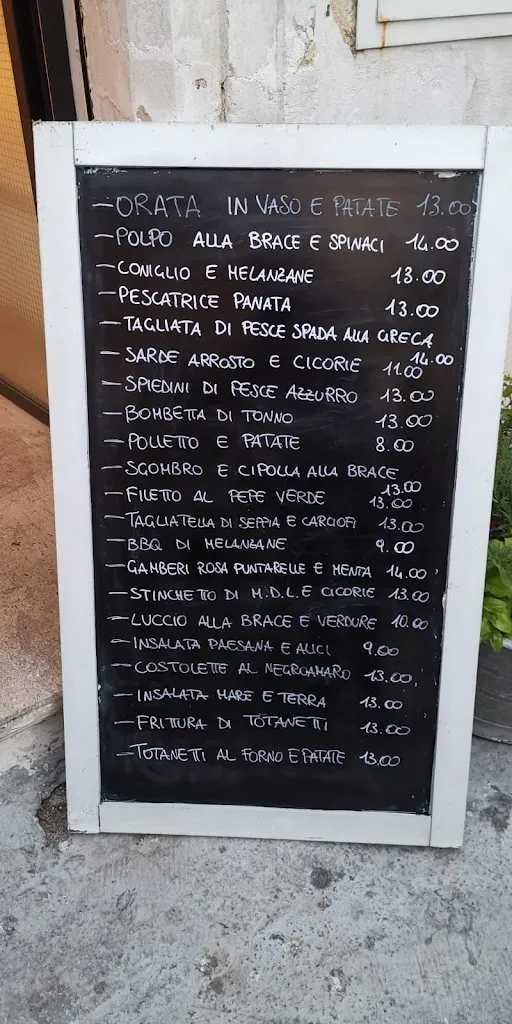 - ORATA IN VASO E PATATE 13.00
- POLPO ALLA BRACE E SPINACI 14.00
- CONIGLIO E MELANZANE 13.00
- PESCATRICE PANATA 13.00
- TAGLIATA DI PESCE SPADA ALLA GRECA 14.00
- SARDE ARROSTO E CICORIE 11.00
- SPIEDINI DI PESCE AZZURRO 13.00
- BOMBETTA DI TONNO 13.00
- POLLETTO E PATATE 8.00
- SGOMBRO E CIPOLLA ALLA BRACE 13.00
- FILETTO AL PEPE VERDE 13.00
- TAGLIATELLA DI SEPPIA E CARCIOFI 13.00
- BBQ DI MELANZANE 9.00
- GAMBERI ROSA PUNTARELLE E MENTA 14.00
- STINCHETTO DI M.D.L. E CICORIE 13.00
- LUCCIO ALLA BRACE E VERDURE 10.00
- INSALATA PAESANA E ALICI 9.00
- COSTOLETTE AL NEGROAMARO 13.00
- INSALATA MARE E TERRA 13.00
- FRITTURA DI TOTANETTI 13.00
- TOTANETTI AL FORNO E PATATE 13.00